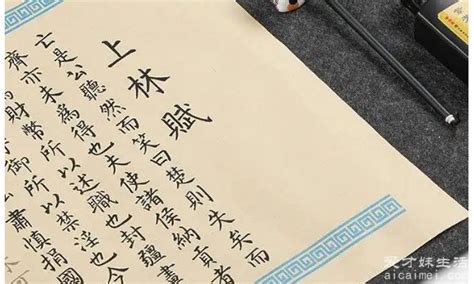 上林賦
亡是公聽然而笑曰楚則失矣而
齊亦未為得也夫使諸侯納貢者
為財幣所以述職也封疆畫
御所以禁淫也今
肅慎捐國
爱才妹生活
aicaimei.com